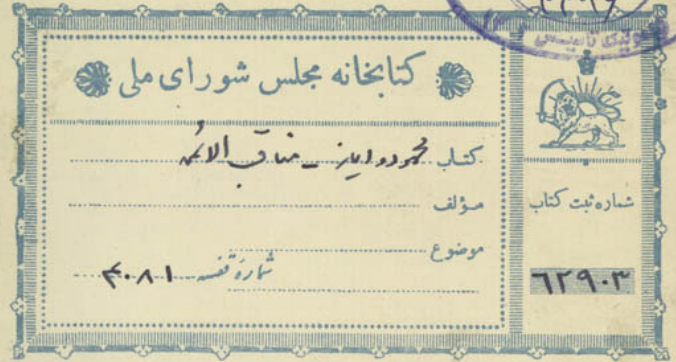 کتابخانه مجلس شورای ملی
کتاب محمود و ایاز – مناقب الائمه
مؤلف
موضوع
شماره قفسه ۴۰۸۱
شماره ثبت کتاب
۶۲۹۰۳